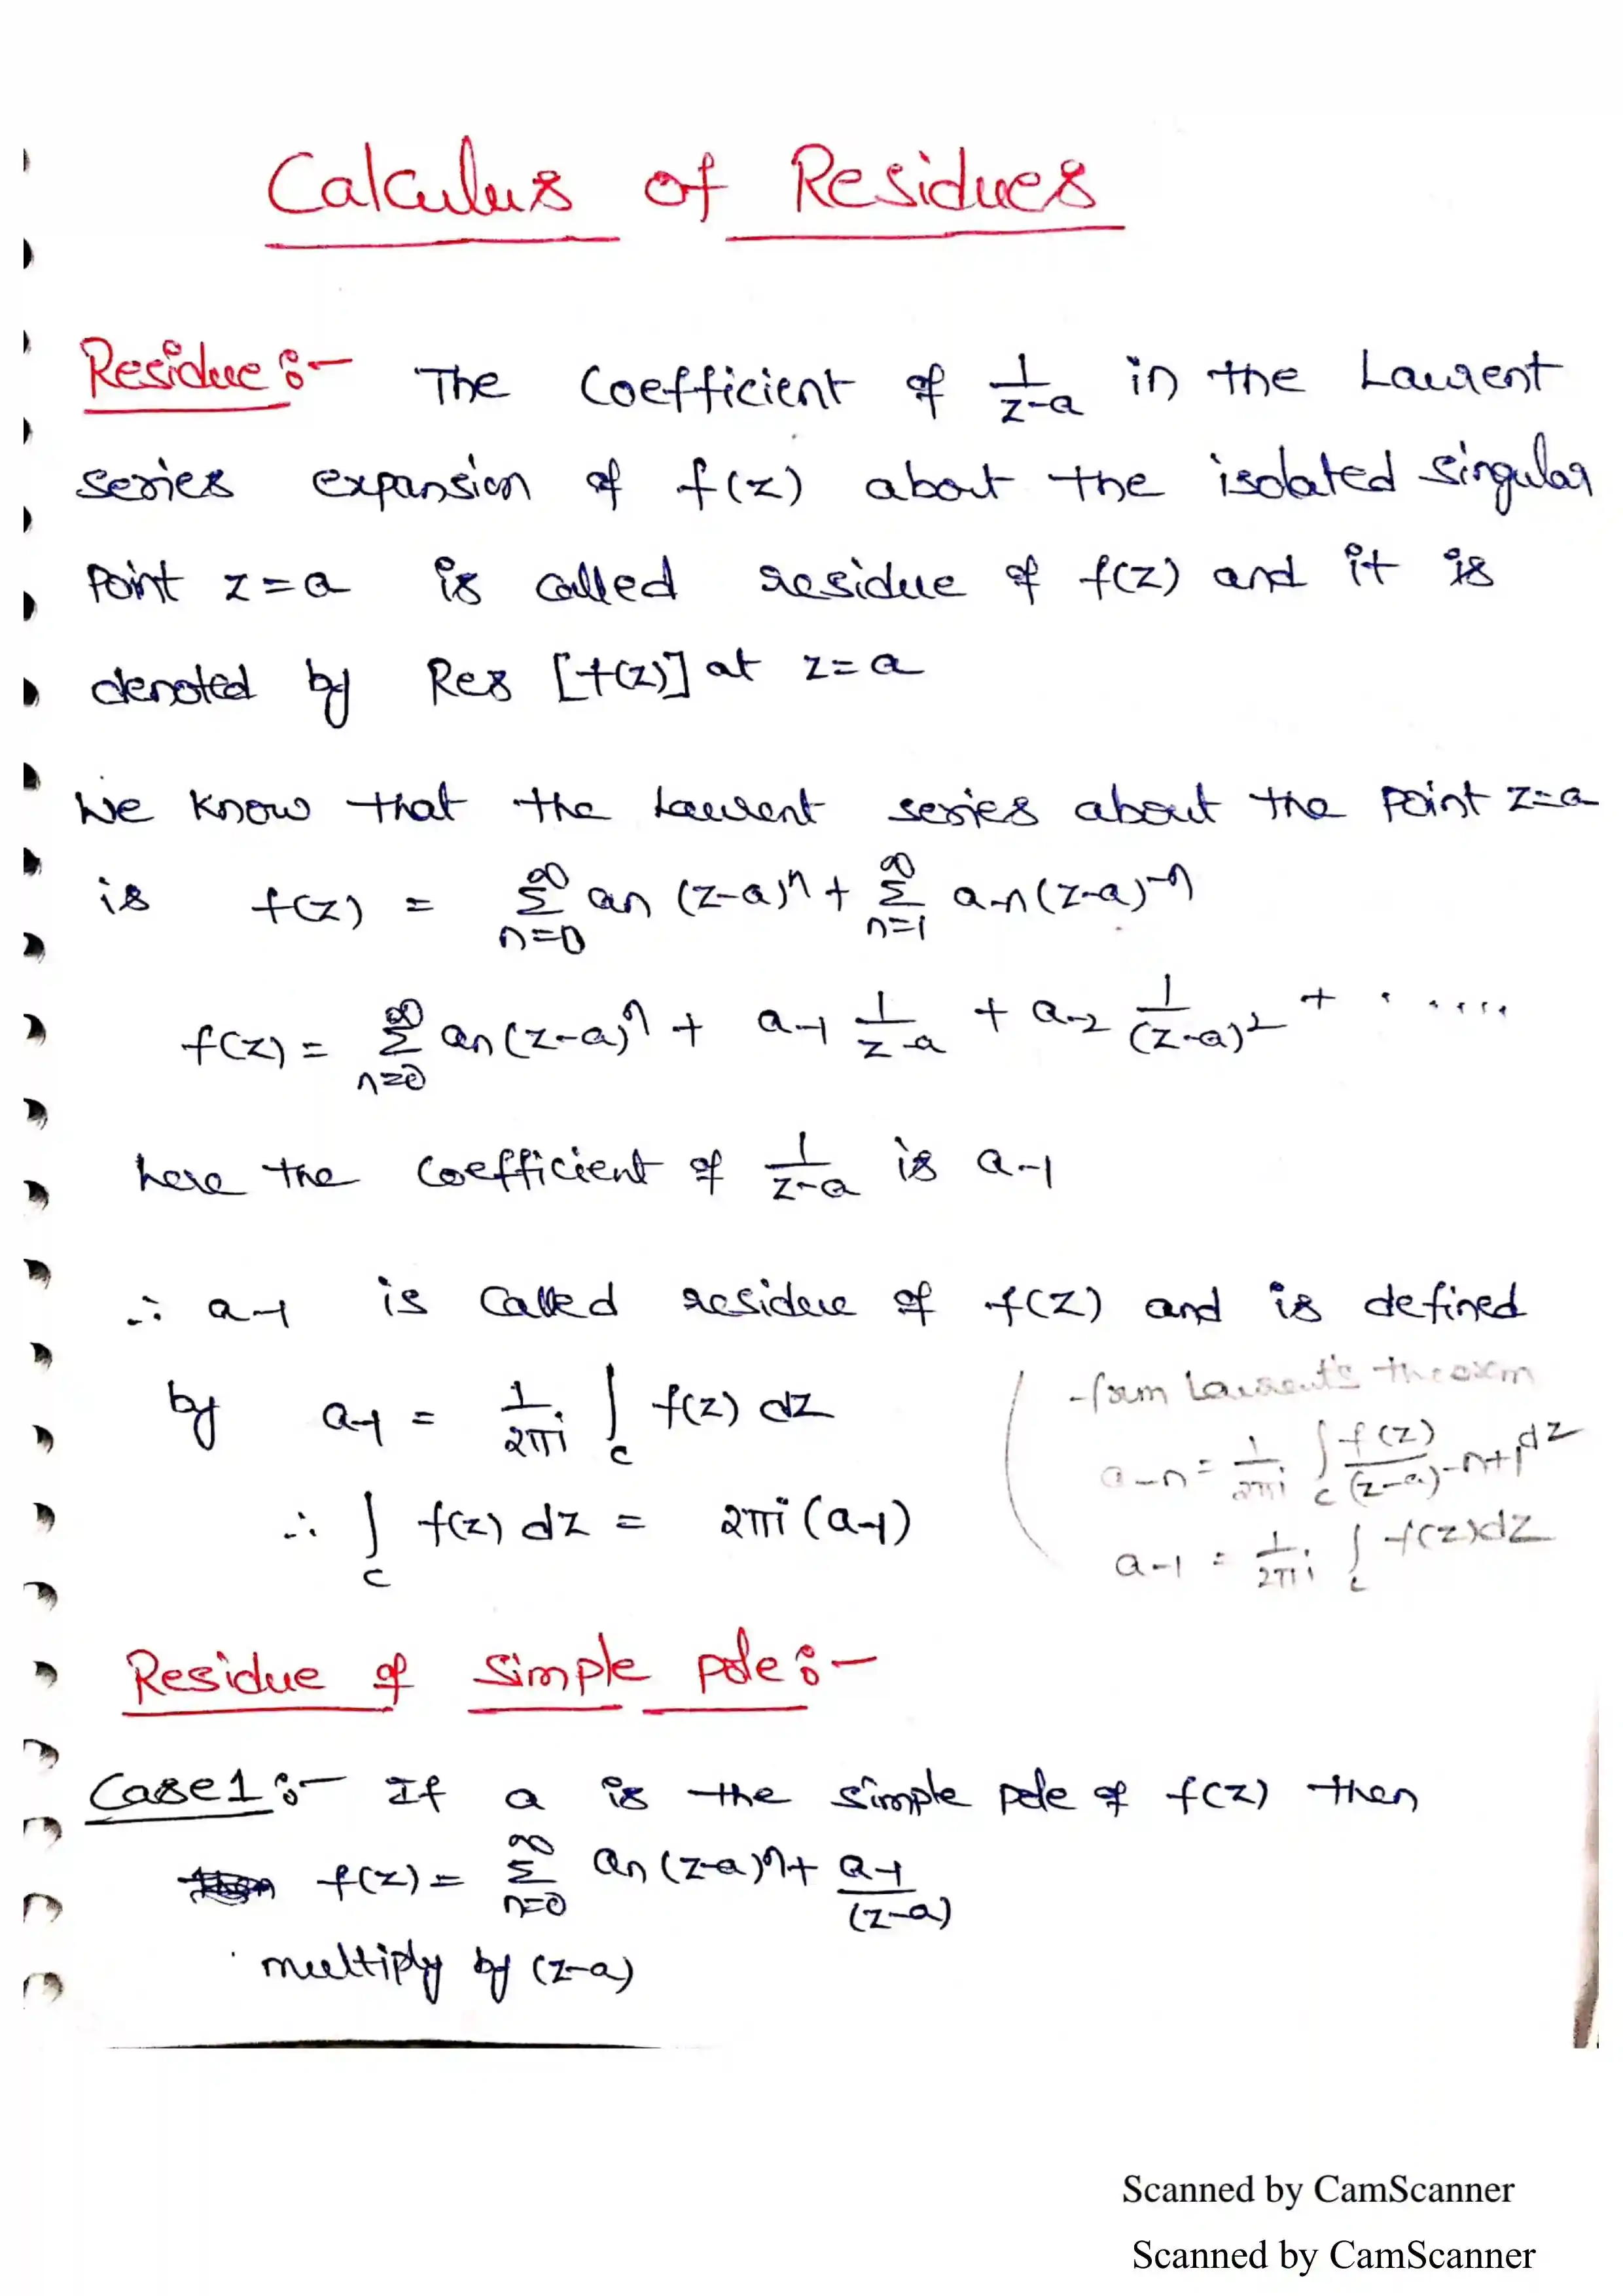 Calculus of Residues
Residue :- The Coefficient of 1/(z-a) in the Laurent
series expansion of f(z) about the isolated singular
Point z=a is called residue of f(z) and it is
denoted by Res [f(z)] at z=a
We know that the Laurent series about the point z=a
is f(z) = ∑_{n=0}^{∞} a_n (z-a)^n + ∑_{n=1}^{∞} a_{-n} (z-a)^{-n}
f(z) = ∑_{n=0}^{∞} a_n (z-a)^n + a_{-1} 1/(z-a) + a_{-2} 1/(z-a)^2 + ......
here the Coefficient of 1/(z-a) is a_{-1}
∴ a_{-1} is Called residue of f(z) and is defined
by a_{-1} = 1/(2πi) ∫_c f(z) dz
∴ ∫_c f(z) dz = 2πi (a_{-1})
from Laurent's theorem
a_{-n} = 1/(2πi) ∫_c f(z)/(z-a)^{-n+1} dz
a_{-1} = 1/(2πi) ∫_c f(z)dz
Residue of Simple pole :-
Case 1 :- If a is the simple pole of f(z) then
f(z) = ∑_{n=0}^{∞} a_n (z-a)^n + a_{-1}/(z-a)
multiply by (z-a)
Scanned by CamScanner
Scanned by CamScanner